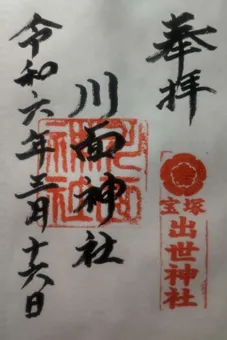 奉拝
宝塚
出世神社
川面神社
令和六年三月十六日